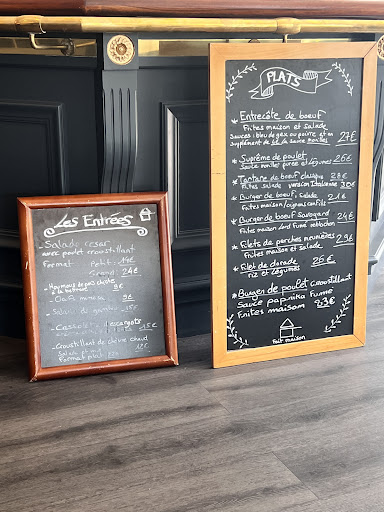 Les Entrées
- Salade cesar
avec poulet croustillant
Format Petit: 14€
Grand 24€
- Houmous de pois chiche
à la betterave 9€
- Oeufs mimosa 9€
- Salade du 
- Cassolette d'escargots 15€
- Croustillant de chèvre chaud
Salade 12€
Format plat
PLATS
* Entrecôte de boeuf
Frites maison et salade
Sauces bleu de gex ou poivre et en
supplément de 5€ la sauce morilles 27€
* Suprême de poulet 26€
Sauce morilles purée et légumes
* Tartare de boeuf classique 28€
Frites salade version italienne 30€
* Burger de boeuf, salade 24€
Frites maison / oignons confits
* Burger de boeuf Savoyard 24€
Frites maison Lard Fumé reblochon
* Filets de perches meunières 29€
Frites maison et salade
* Filet de dorade 26€
riz et légumes
* Burger de poulet croustillant
Sauce paprika Fumé
Frites maison 23€
Fait maison